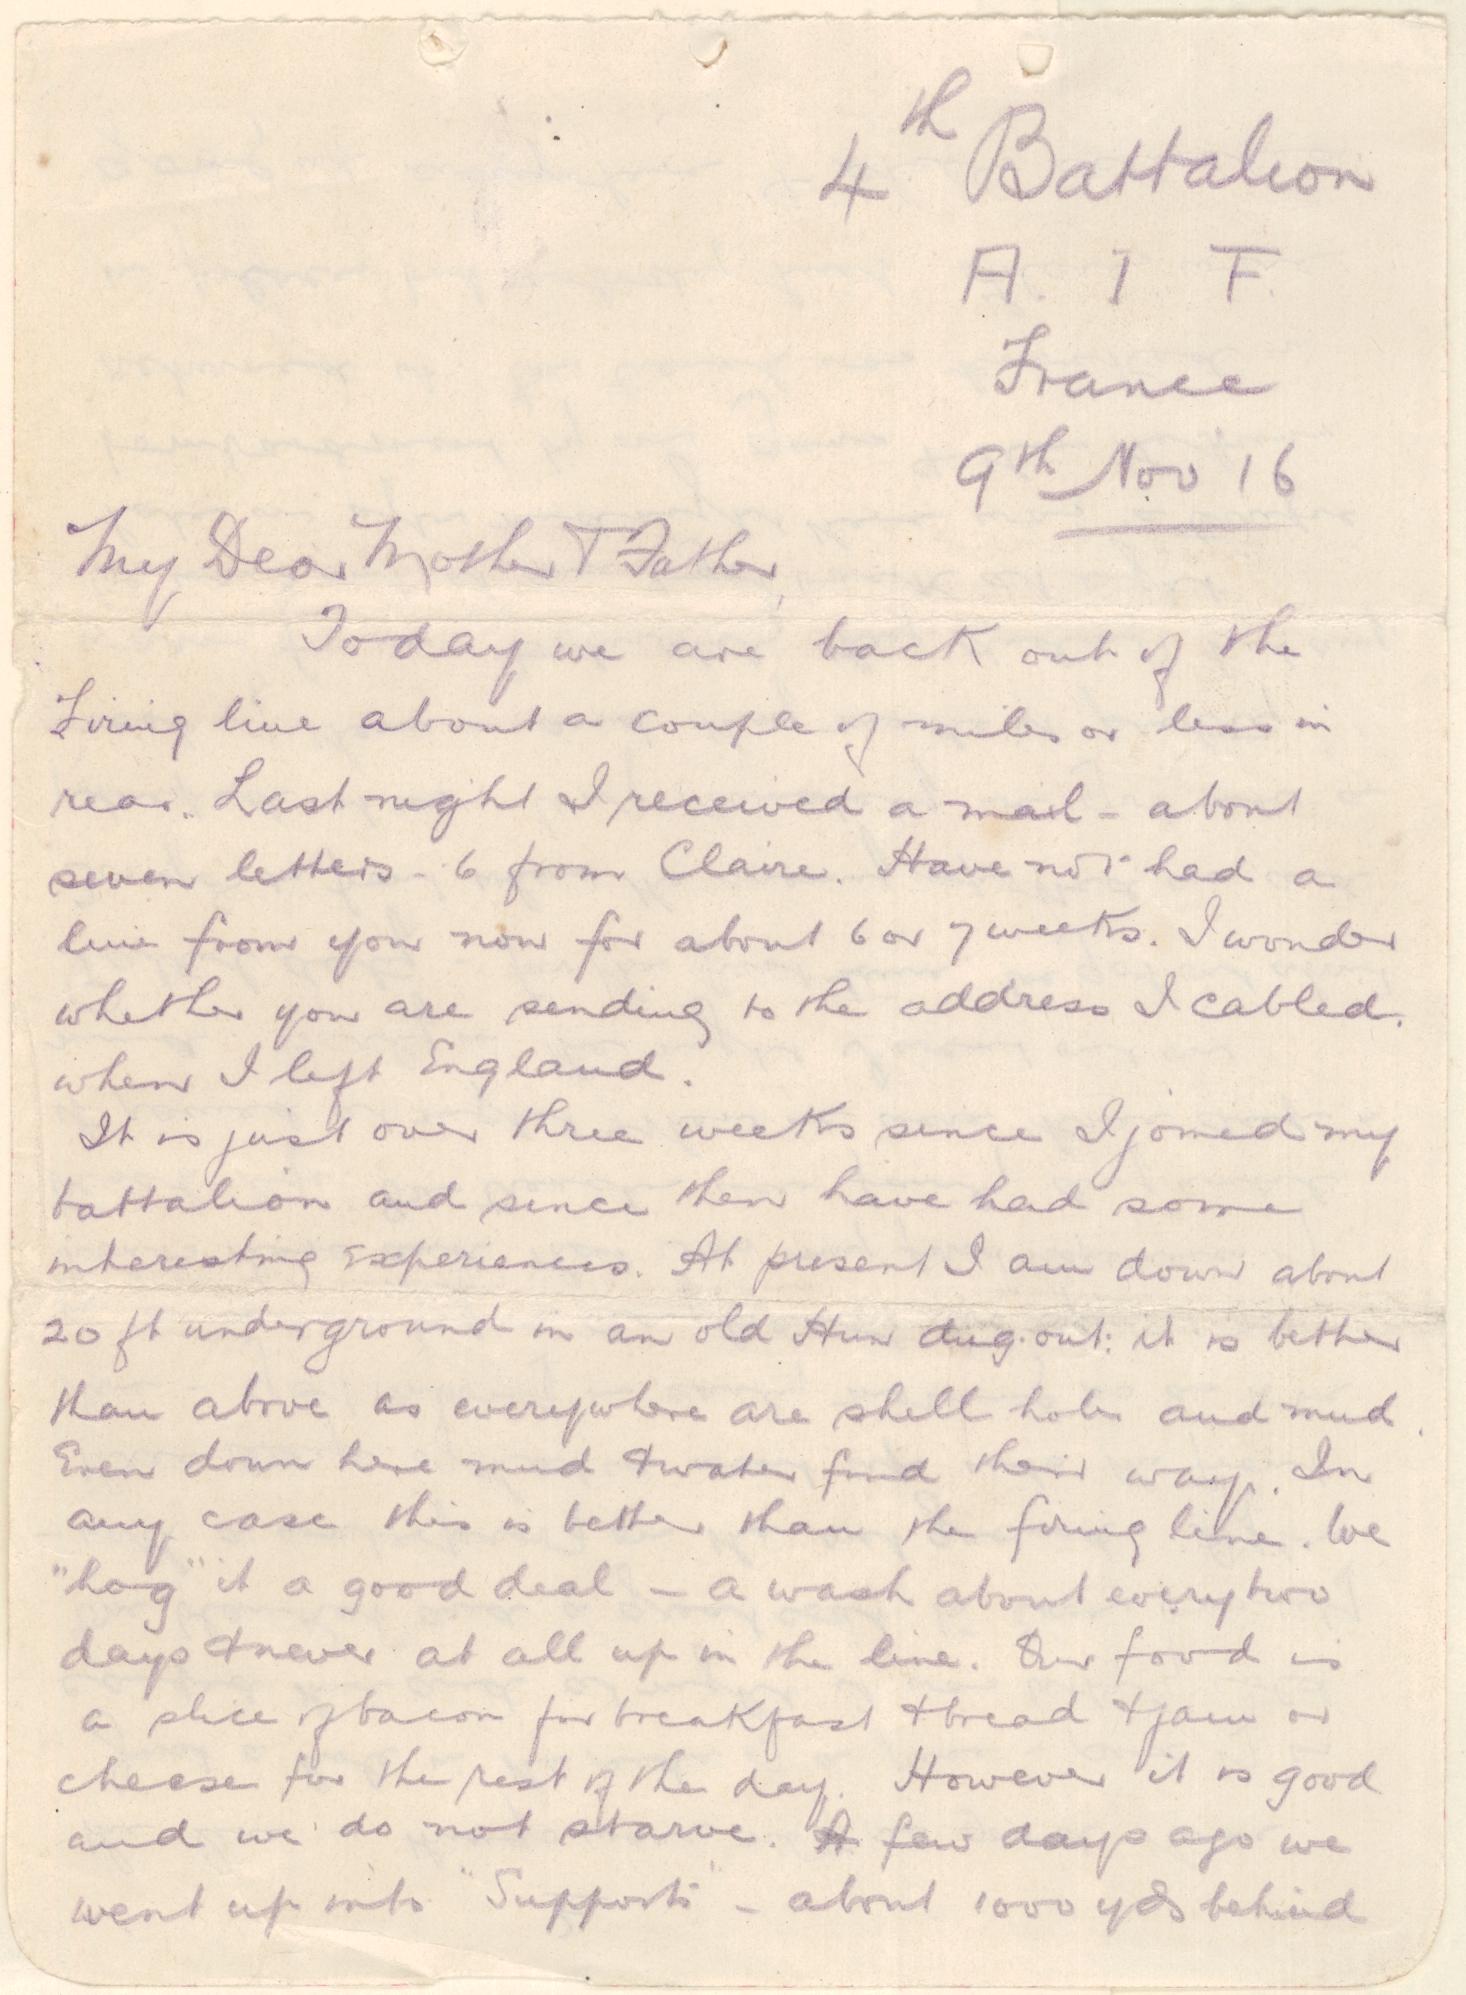 4th Battalion
A. I F.
France
9th Nov 16
My Dear Mother & Father,
Today we are back out of the
Firing line about a couple of miles or less in
rear. Last night I received a mail - about
seven letters - 6 from Claire. Have not had a
line from you now for about 6 or 7 weeks. I wonder
whether you are sending to the address I cabled.
when I left England.
It is just over three weeks since I joined my
battalion and since then have had some
interesting experiences. At present I am down about
20 ft underground in an old Hun dug-out: it is better
than above as everywhere are shell holes and mud.
Even down here mud & water find their way. In
any case this is better than the firing line. We
"hog" it a good deal - a wash about every two
days & never at all up in the line. Our food is
a slice of bacon for breakfast & bread & jam or
cheese for the rest of the day. However it is good
and we do not starve. A few days ago we
went up into "Supports" - about 1000 yds behind